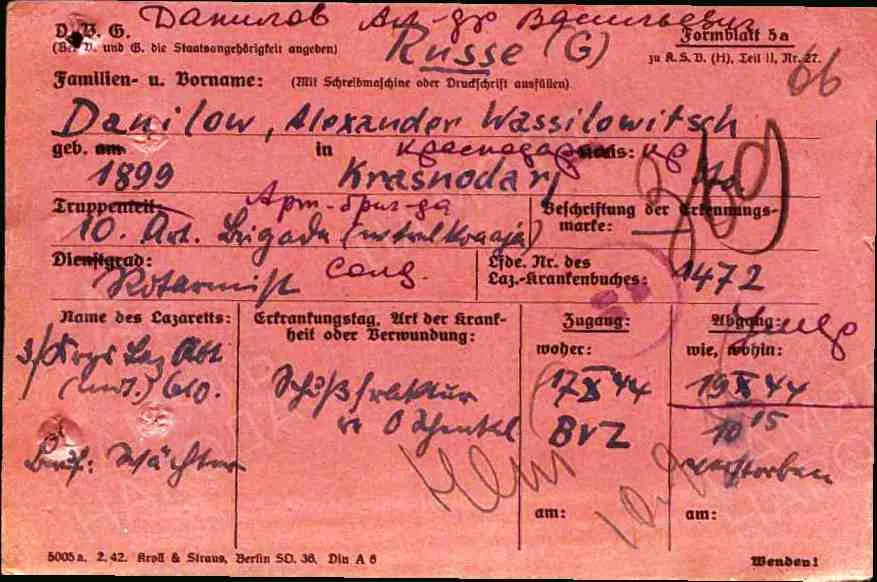 Данилов Ал-др Васильевич
D. V. G.
(Bei V. und G. die Staatsangehörigkeit angeben)
Russe (G)
Formblatt 5a
zu K.S.V. (H), Teil II, Nr. 27.
66
Familien- u. Vorname: (Mit Schreibmaschine oder Druckschrift ausfüllen)
Danilow, Alexander Wassilowitsch
geb. am in Краснодар Kreis: кр
1899 Krasnodarj
369
Truppenteil: Арт-бриг-да
Beschriftung der Erkennungs-
marke: —
10. Art. Brigade
Dienstgrad:
Rotarmist Солд.
Lfde. Nr. des
Laz.-Krankenbuches: 1472
Name des Lazaretts:
3/Krgs Laz Abt
(mot.) 610.
Beruf: Wächter
Erkrankungstag, Art der Krank-
heit oder Verwundung:
Schußfraktur
re O Schenkel
Zugang:
woher:
17 X 44
BvZ
am:
Abgang:
умер
wie, wohin:
19 X 44
10 15
verstorben
am:
5005 a. 2. 42. Kroll & Straus, Berlin SO. 36, Din A 6
Wenden!